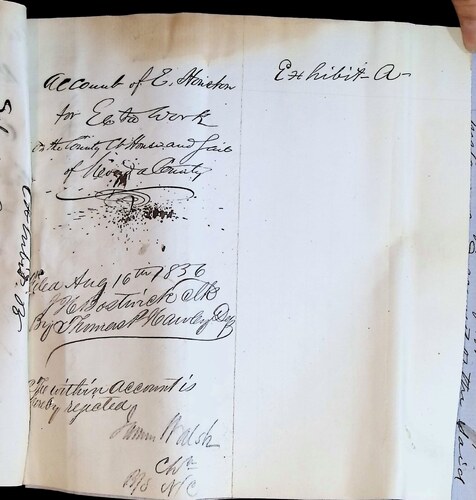 Account of E. Houston
for Exta Work
on the County Ct House and Jail
of Nevada County
Filed Aug 16th 1856
J H Bostwick Clk
By Thomas P Hawley Dep
The within account is
hereby rejected
Walsh
Chn
Exhibit A